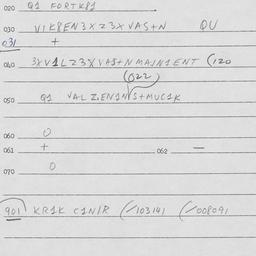 020 Q1 FORTK81
030 VIK8EN3XZ3XVAS+N QU
031 +
040 3XV1LZ3XVAS+NMAIN1ENT (120
(022)
050 Q1 VALZIEN1NIS+MUC1K
060 O
061 + 062 —
070 O
901 KR1K C1N/R (/103141 (/008091